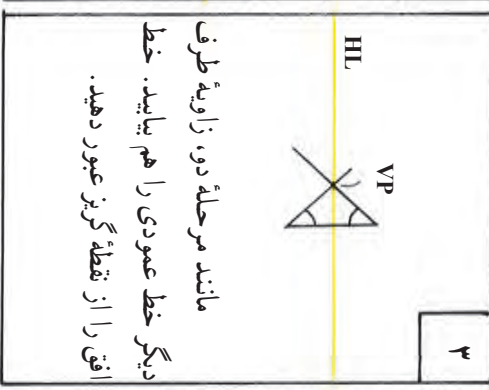 ۳
VP
HL
مانند مرحلهٔ دو، زاویهٔ طرف
دیگر خط عمودی را هم بیابید. خط
افق را از نقطهٔ گریز عبور دهید.